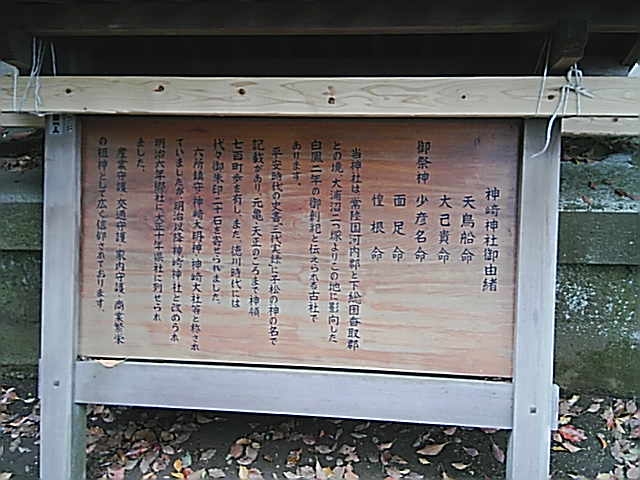 神崎神社御由緒
天鳥船命
大己貴命
御祭神 少彦名命
面足命
惶根命
当神社は常陸国河内郡と下総国香取郡
との境、大浦沼二つ塚よりこの地に影向した
白鳳二年の御創祀と伝えられる古社で
あります。
平安時代の史書三代実録に子松の神の名で
記載があり、元亀、天正のころまで神領
七百町歩を有し、また徳川時代には
代々御朱印二十石を寄せられました。
六所鎮守神崎大明神、神崎大社等と称され
ていましたが、明治以降神崎神社と改められ
明治六年郷社に、大正十年県社に列せられ
ました。
産業守護、交通守護、家内守護、商業繁栄
の祖神として広く信仰されております。